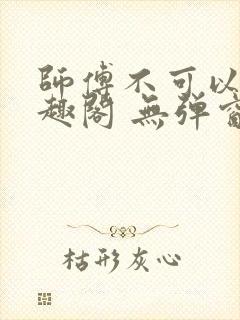 師傅不可以
趣閣 無彈窗
枯形灰心